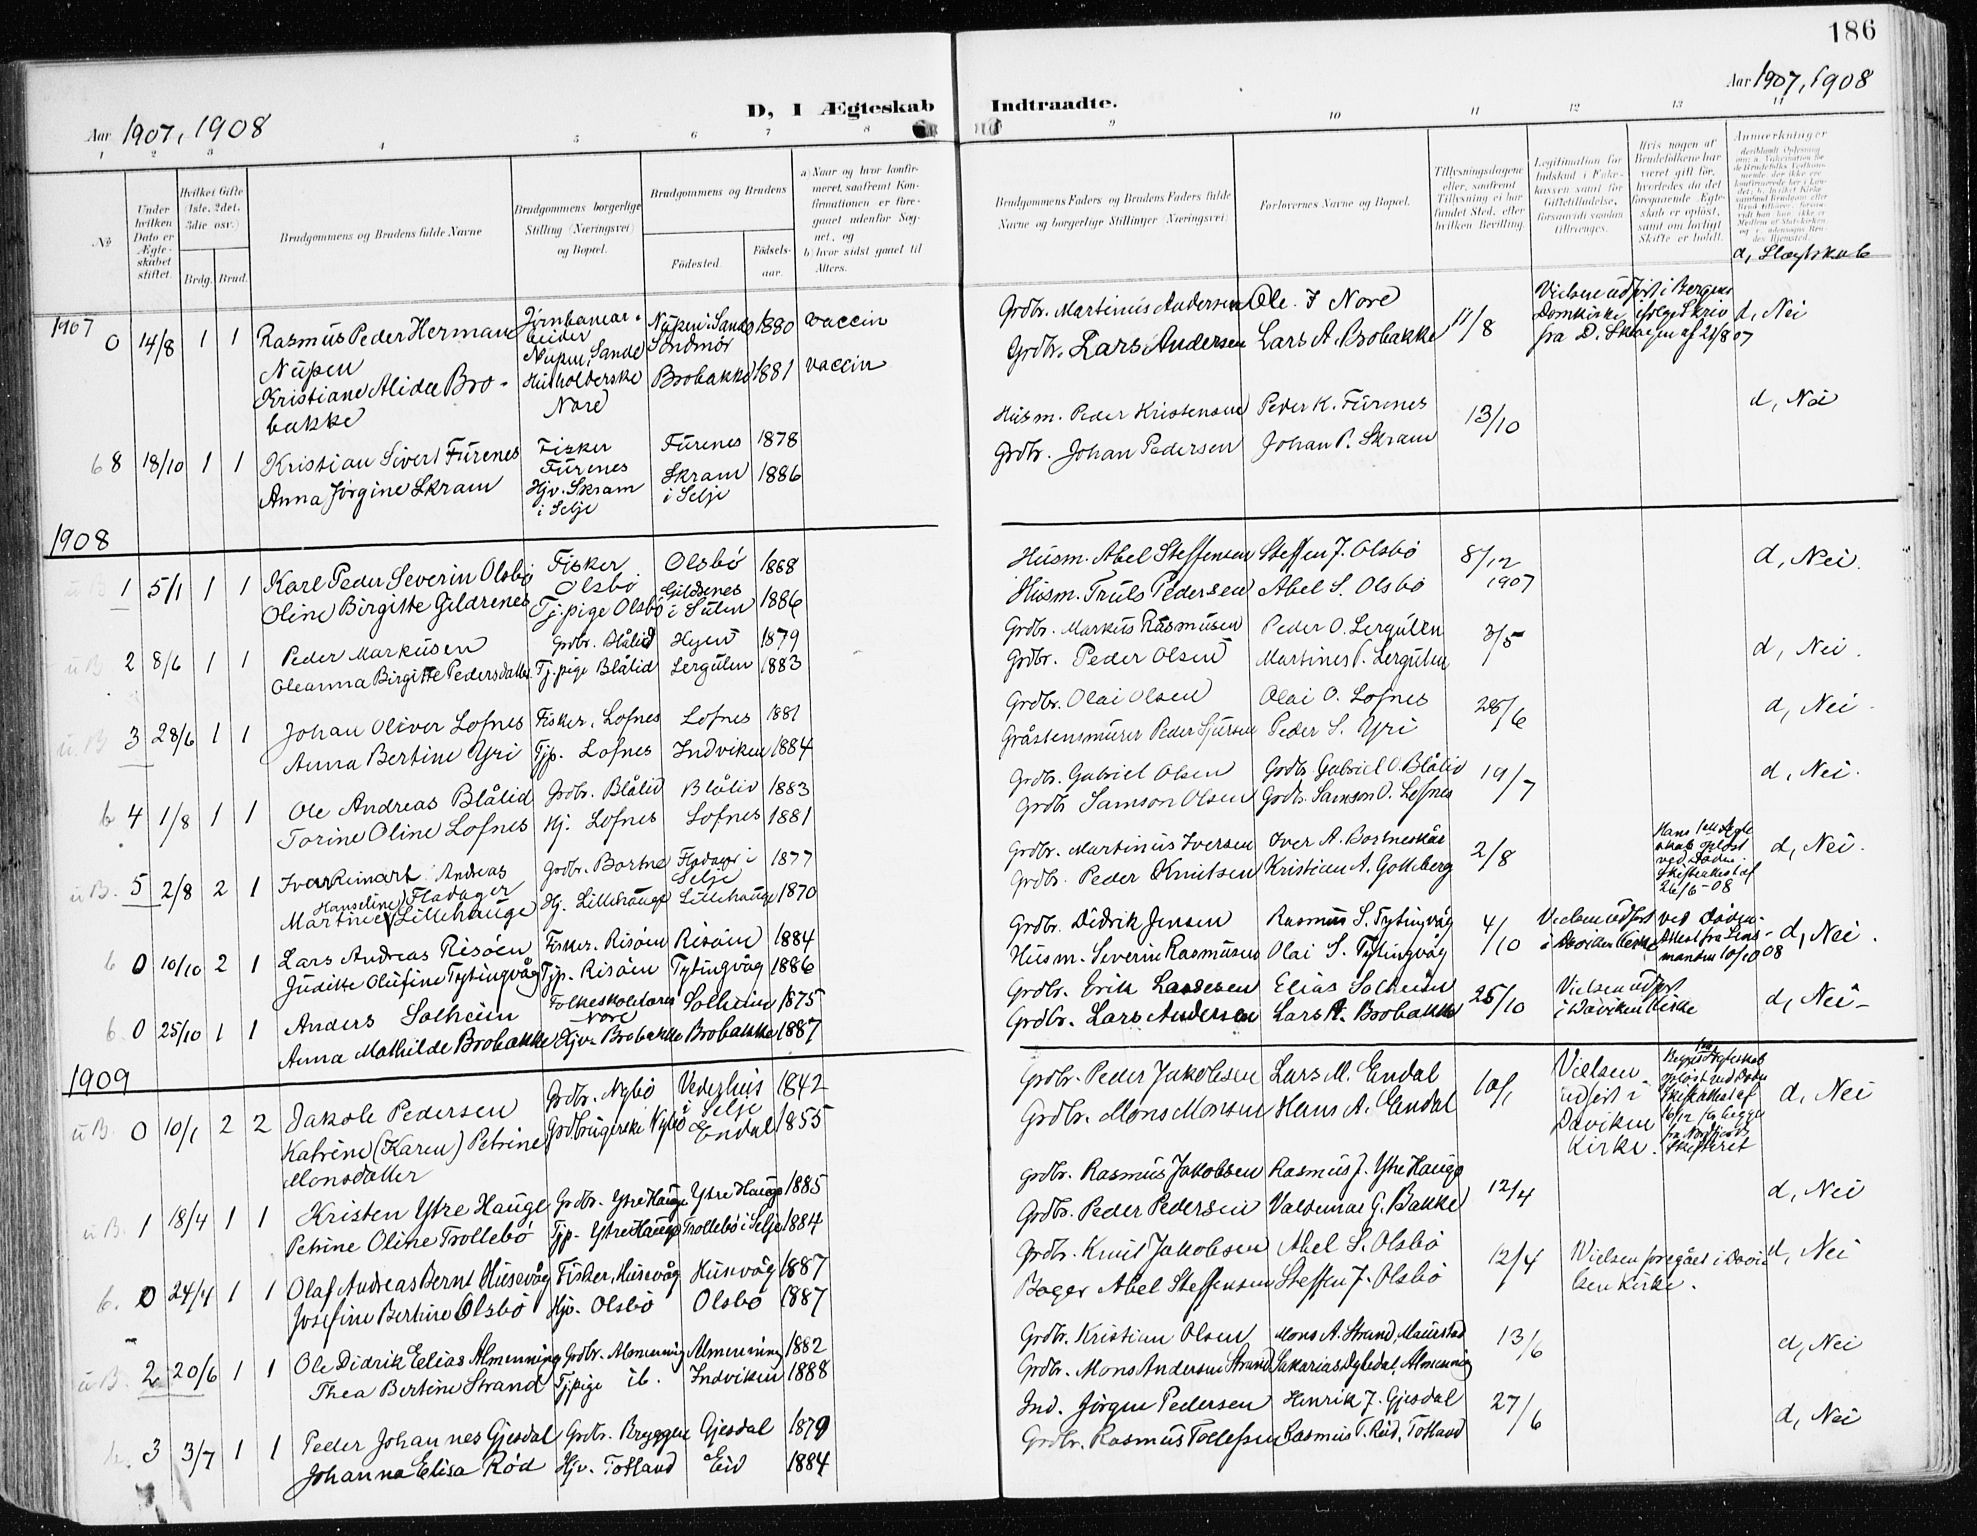 186
Aar 1907, 1908
D, I Ægteskab Indtraadte.
Aar 1907, 1908
1 2 3 4 5 6 7 8 9 10 11 12 13
No
Under hvilken Dato er Ægteskabet stiftet.
Hvilket Gifte (1ste, 2det, 3die osv.)
Brdg. Brud.
Brudgommens og Brudens fulde Navne
Brudgommens borgerlige Stilling (Næringsvei) og Bopæl.
Brudgommens og Brudens
Födested.
Födselsaar.
a) Naar og hvor konfirmeret, saafremt Konfirmationen er foregaaet udenfor Sognet, og
b) hvor sidst gaaet til Alters.
Brudgommens Faders og Brudens Faders fulde Navne og borgerlige Stillinger (Næringsvei)
Forlovernes Navne og Bopæl.
Tillysningsdagene eller, saafremt Tillysning ei har fundet Sted, efter hvilken Bevilling.
Hvis nogen af Brudefolkene har været gift før, hvorledes da det foregaaende Ægteskab er opløst, samt om lovligt Skifte er holdt.
Anmærkninger
d, Slægtskab
1907
0 14/8 1 1 Rasmus Peder Herman Nupen
Jernbanearbeider Nupen, Sande
Nupen i Sande Søndmør 1880 vaccin
Grdbr. Martinus Andersen Ole J Nore 11/8
Kristiane Alida Brobakke Husholderske Nore Brobakke 1881 vaccin
Grdbr. Lars Andersen Lars A. Brobakke
Vielsen udført i Bergens Domkirke ifølge Skriv fra D. Skaagen af 21/8 07
d, Nei
b 8 18/10 1 1 Kristian Sivert Furenes Fisker Furenes Furenes 1878
Husm. Peder Kristensen Peder K. Furenes 13/10 d, Nei
Anna Jørgine Skram Hjv. Skram i Selje Skram i Selje 1886
Grdbr. Johan Pedersen Johan P. Skram
1908
u B 1 5/1 1 1 Karl Peder Severin Olsbø Fisker Olsbø Olsbø 1868
Husm. Abel Steffensen Steffen J. Olsbø 8/12 1907 d, Nei.
Oline Birgitte Gildrenes Tj.pige Olsbø Gildrenes i Sulen 1886
Husm. Truls Pedersen Abel S. Olsbø
u B 2 8/6 1 1 Peder Markusen Grdbr. Blålid Hyen 1879
Grdbr. Markus Rasmusen Peder O. Lergulen 3/5 d, Nei.
Oleanna Birgitte Pedersdatter Tj.pige Blålid Lergulen 1883
Grdbr. Peder Olsen Martines P. Lergulen
u. B 3 28/6 1 1 Johan Oliver Lofnes Fisker, Lofnes Lofnes 1881
Grdbr. Olai Olsen Olai O. Lofnes 28/6 d, Nei.
Anna Bertine Yri Tjp. Lofnes Indviken 1884
Gråstensmurer Peder Sjursen Peder S. Yri
b 4 1/8 1 1 Ole Andreas Blålid Grdbr. Blålid Blålid 1883
Grdbr. Gabriel Olsen Grdbr. Gabriel O. Blålid 19/7 d, Nei.
Torine Oline Lofnes Hj. Lofnes Lofnes 1881
Grdbr Samson Olsen Grdbr. Samson O. Lofnes
u B. 5 2/8 2 1 Iver Reinart Andreas Fladager Grdbr. Bortne Fladager i Selje 1877
Grdbr. Martinus Iversen Iver A. Bortneskår 2/8 d, Nei.
Martine (Hanseline) Lillehauge Hj. Lillehauge Lillehauge 1870
Grdbr. Peder Knutsen Kristian A. Gotteberg
Hans 1ste Ægteskab opløst ved Døden. Skifteattest af 26/6-08
b 0 10/10 2 1 Lars Andreas Risøen Fisker. Risøen Risøen 1884
Grdbr. Didrik Jensen Rasmus S. Tytingvåg 4/10 Vielsen udført i Daviken Kirke d, Nei.
Juditte Olufine Tytingvåg Tjp. Risøen Tytingvåg 1886
Husm. Severin Rasmusen Olai S. Tytingvåg
ved Døden. Attest fra Lensmanden 10/10 08
b 0 25/10 1 1 Anders Solheim Folkeskolelærer Nore Solheim 1875
Grdbr. Erik Lassesen Elias Solheim 25/10 Vielsen udført i Daviken Kirke d, Nei-
Anna Mathilde Brobakke Hjv. Brobakke Brobakke 1887
Grdbr. Lars Andersen Lars A. Brobakke
1909
u B. 0 10/1 2 2 Jakob Pedersen Grdbr. Nybø Vedelhus i Selje 1842
Grdbr. Peder Jakobsen Lars M. Endal 10/1 Vielsen udført i Daviken Kirke. d, Nei
Katrine (Karen) Petrine Monsdatter Grdbrugerske Nybø Endal 1855
Grdbr. Mons Monsen Hans A. Endal
Begges 1ste Ægteskab opløst ved Døden Skifteattest af 10/12 fra begge fra Nordfjords Skifteret
u B. 1 18/4 1 1 Kristen Ytre Hauge Grdbr. Ytre Hauge Ytre Hauge 1885
Grdbr. Rasmus Jakobsen Rasmus J. Ytre Hauge 12/4 d, Nei
Petrine Oline Trollebø Tjp. Ytre Hauge Trollebø i Selje 1884
Grdbr. Peder Pedersen Valdemar G. Bakke
b. 0 24/4 1 1 Olaf Andreas Bernt Husevåg Fisker, Husevåg Husevåg 1887
Grdbr. Knut Jakobsen Abel S. Olsbø 12/4 Vielsen foregået i Daviken Kirke. d, Nei
Josefine Bertine Olsbø Hjv. Olsbø Olsbø 1887
Bager Abel Steffensen Steffen J. Olsbø
u B. 2 20/6 1 1 Ole Didrik Elias Almenning Grdbr. Almenning Almenning 1882
Grdbr. Kristian Olsen Mons A. Strand, Maurstad 13/6 d, Nei
Thea Bertine Strand Tj.pige ib. Indviken 1888
Grdbr. Mons Andersen Strand Sakarias Dybedal, Almenning
b. 3 3/7 1 1 Peder Johannes Gjesdal Grdbr. Bryggen Gjesdal 1879
Ind. Jörgen Pedersen Henrik J. Gjesdal 27/6 d, Nei
Johanna Elisa Rød Hjv. Totland Eid 1884
Grdbr. Rasmus Tollefsen Rasmus T. Rød, Totland